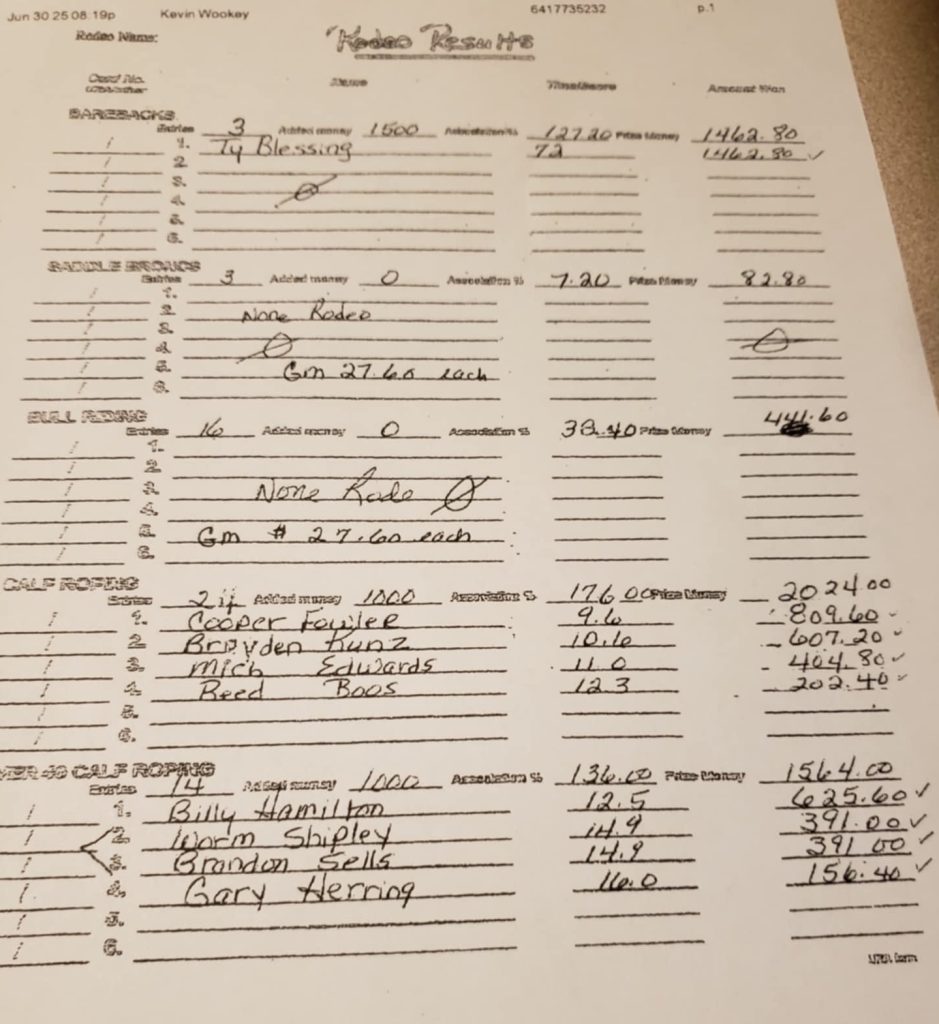 Jun 30 25 08:19p Kevin Wookey 6417735232 p.1
Rodeo Name: Rodeo Results
Card No. Name Time/Score Amount Won
BAREBACKS
Entries 3 Added money 1500 Association % 127.20 Prize Money 1462.80
/ 1. Ty Blessing 72 1462.80 ✓
/ 2.
/ 3.
/ 4.
/ 5.
/ 6.
SADDLE BRONCS
Entries 3 Added money 0 Association % 7.20 Prize Money 82.80
/ 1.
/ 2. None Rodeo
/ 3.
/ 4.
/ 5. Gm 27.60 each
/ 6.
BULL RIDING
Entries 16 Added money 0 Association % 38.40 Prize Money 441.60
/ 1.
/ 2.
/ 3. None Rodo
/ 4.
/ 5. Gm # 27.60 each
/ 6.
CALF ROPING
Entries 24 Added money 1000 Association % 176.00 Prize Money 2024.00
/ 1. Cooper Fowlee 9.6 809.60
/ 2. Brayden Kunz 10.6 607.20 ✓
/ 3. Mich Edwards 11.0 404.80 ✓
/ 4. Reed Boos 12.3 202.40 ✓
/ 5.
/ 6.
VER 40 CALF ROPING
Entries 14 Added money 1000 Association % 136.00 Prize Money 1564.00
/ 1. Billy Hamilton 12.5 625.60 ✓
/ 2. Worm Shipley 14.9 391.00 ✓
/ 3. Brandon Sells 14.9 391.00 ✓
/ 4. Gary Herring 16.0 156.40 ✓
/ 5.
/ 6.
form